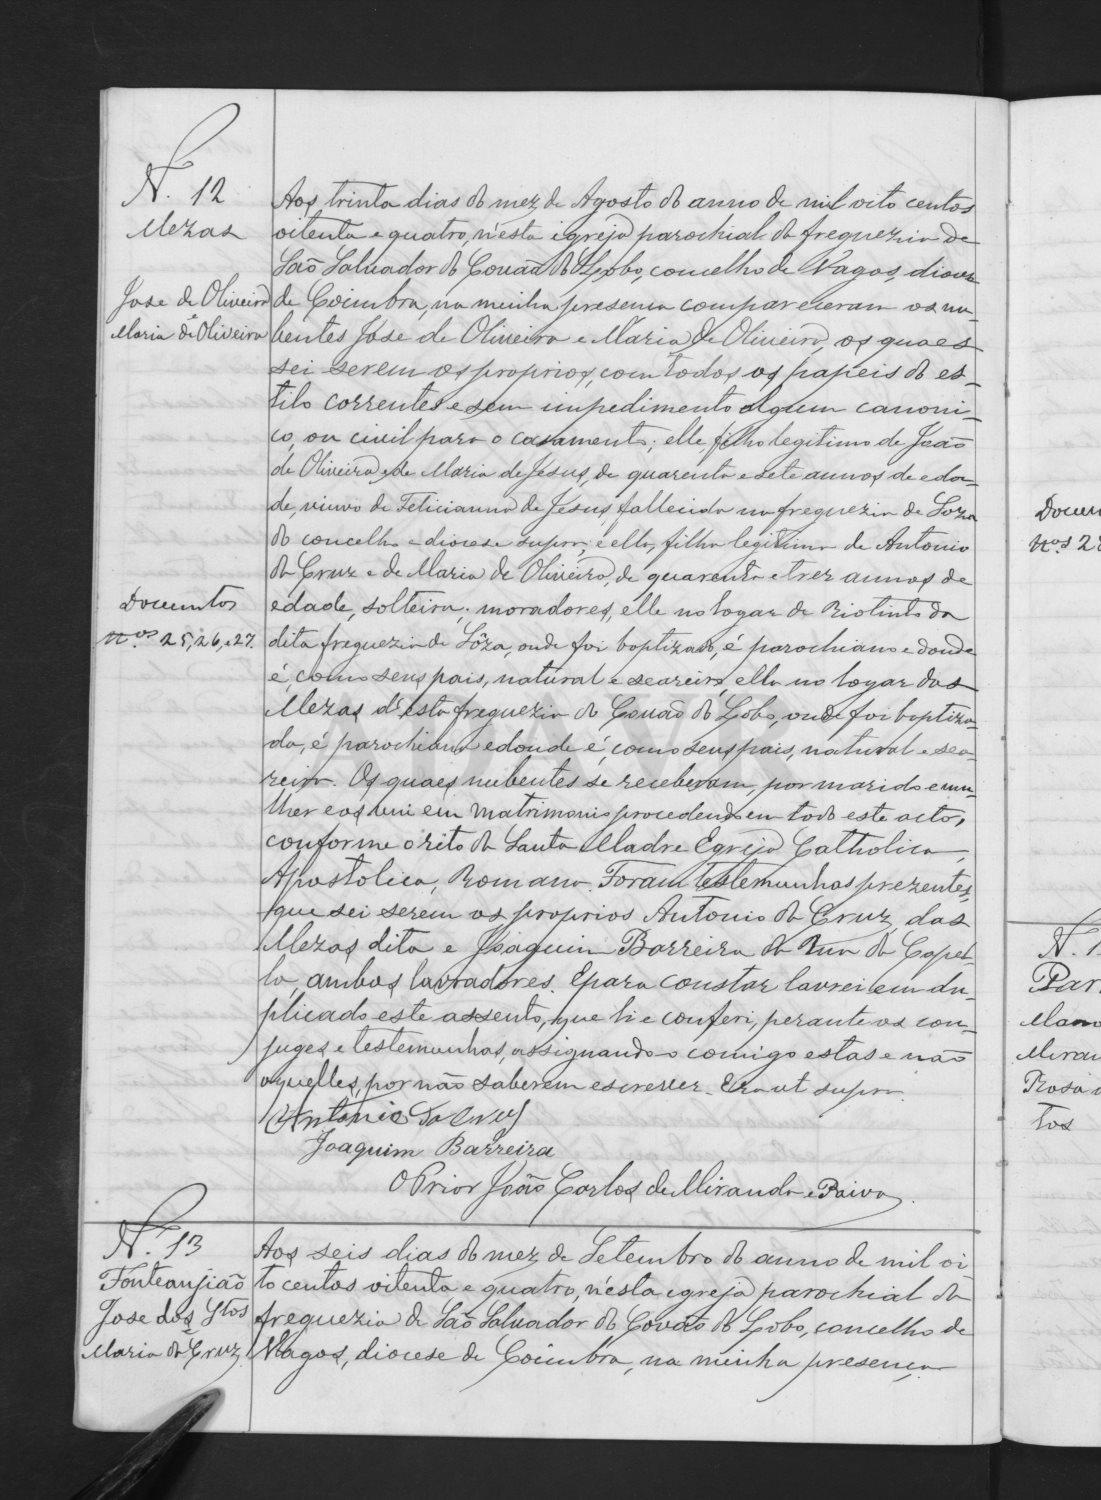 N. 12
Mezas
Jose de Oliveira
e
Maria de Oliveira
Documentos
n.os 25, 26, e 27.
Aos trinta dias do mez de Agosto do anno de mil oito centos
oitenta e quatro, n'esta igreja parochial da freguezia de
São Salvador do Covão do Lobo, concelho de Vagos, diocese
de Coimbra, na minha presença compareceram os nu-
bentes Jose de Oliveira e Maria de Oliveira, os quaes
sei serem os proprios, com todos os papeis do es-
tilo correntes e sem impedimento algum canoni-
co, ou civil para o casamento; elle, filho legitimo de João
de Oliveira, e de Maria de Jesus, de quarenta e sete annos de eda-
de, viuvo de Felicianna de Jesus, fallecida na freguezia de Soza
do concelho e diocese supra; e ella, filha legitima de Antonio
da Cruz e de Maria de Oliveira, de quarenta e trez annos de
edade, solteira; moradores, elle no logar de Riotinto da
dita freguezia de Sôza, onde foi baptizado, é parochiano e donde
é, como seus pais, natural e seareiro, ella no logar das
Mezas d'esta freguezia do Covão do Lobo, onde foi baptiza-
da, é parochiana e donde é, como seus pais, natural e sea-
reira. Os quaes nubentes se receberam, por marido e mu-
lher e os uni em matrimonio procedendo em todo este acto,
conforme o rito da Santa Madre Egreja Catholica,
Apostolica, Romana. Foram testemunhas prezentes,
que sei serem os proprios Antonio da Cruz, das
Mezas dita e Joaquim Barreira da Rua da Capel-
la, ambos lavradores. E para constar lavrei em du-
plicado este assento, que li e conferi, perante os con-
juges e testemunhas, assignando-o comigo estas e não
aquelles, por não saberem escrever. Era ut supra.
Antonio da Cruz
Joaquim Barreira
O Prior João Carlos de Miranda e Paiva.
N. 13
Fonte anjião
Jose dos Stos
e
Maria da Cruz.
Aos seis dias do mez de Setembro do anno de mil oi-
to centos oitenta e quatro, n'esta egreja parochial da
freguezia de São Salvador do Covão do Lobo, concelho de
Vagos, diocese de Coimbra, na minha presença
Docum
n.os 2
N. 1
Par
Mano
Miran
Rosa
tos